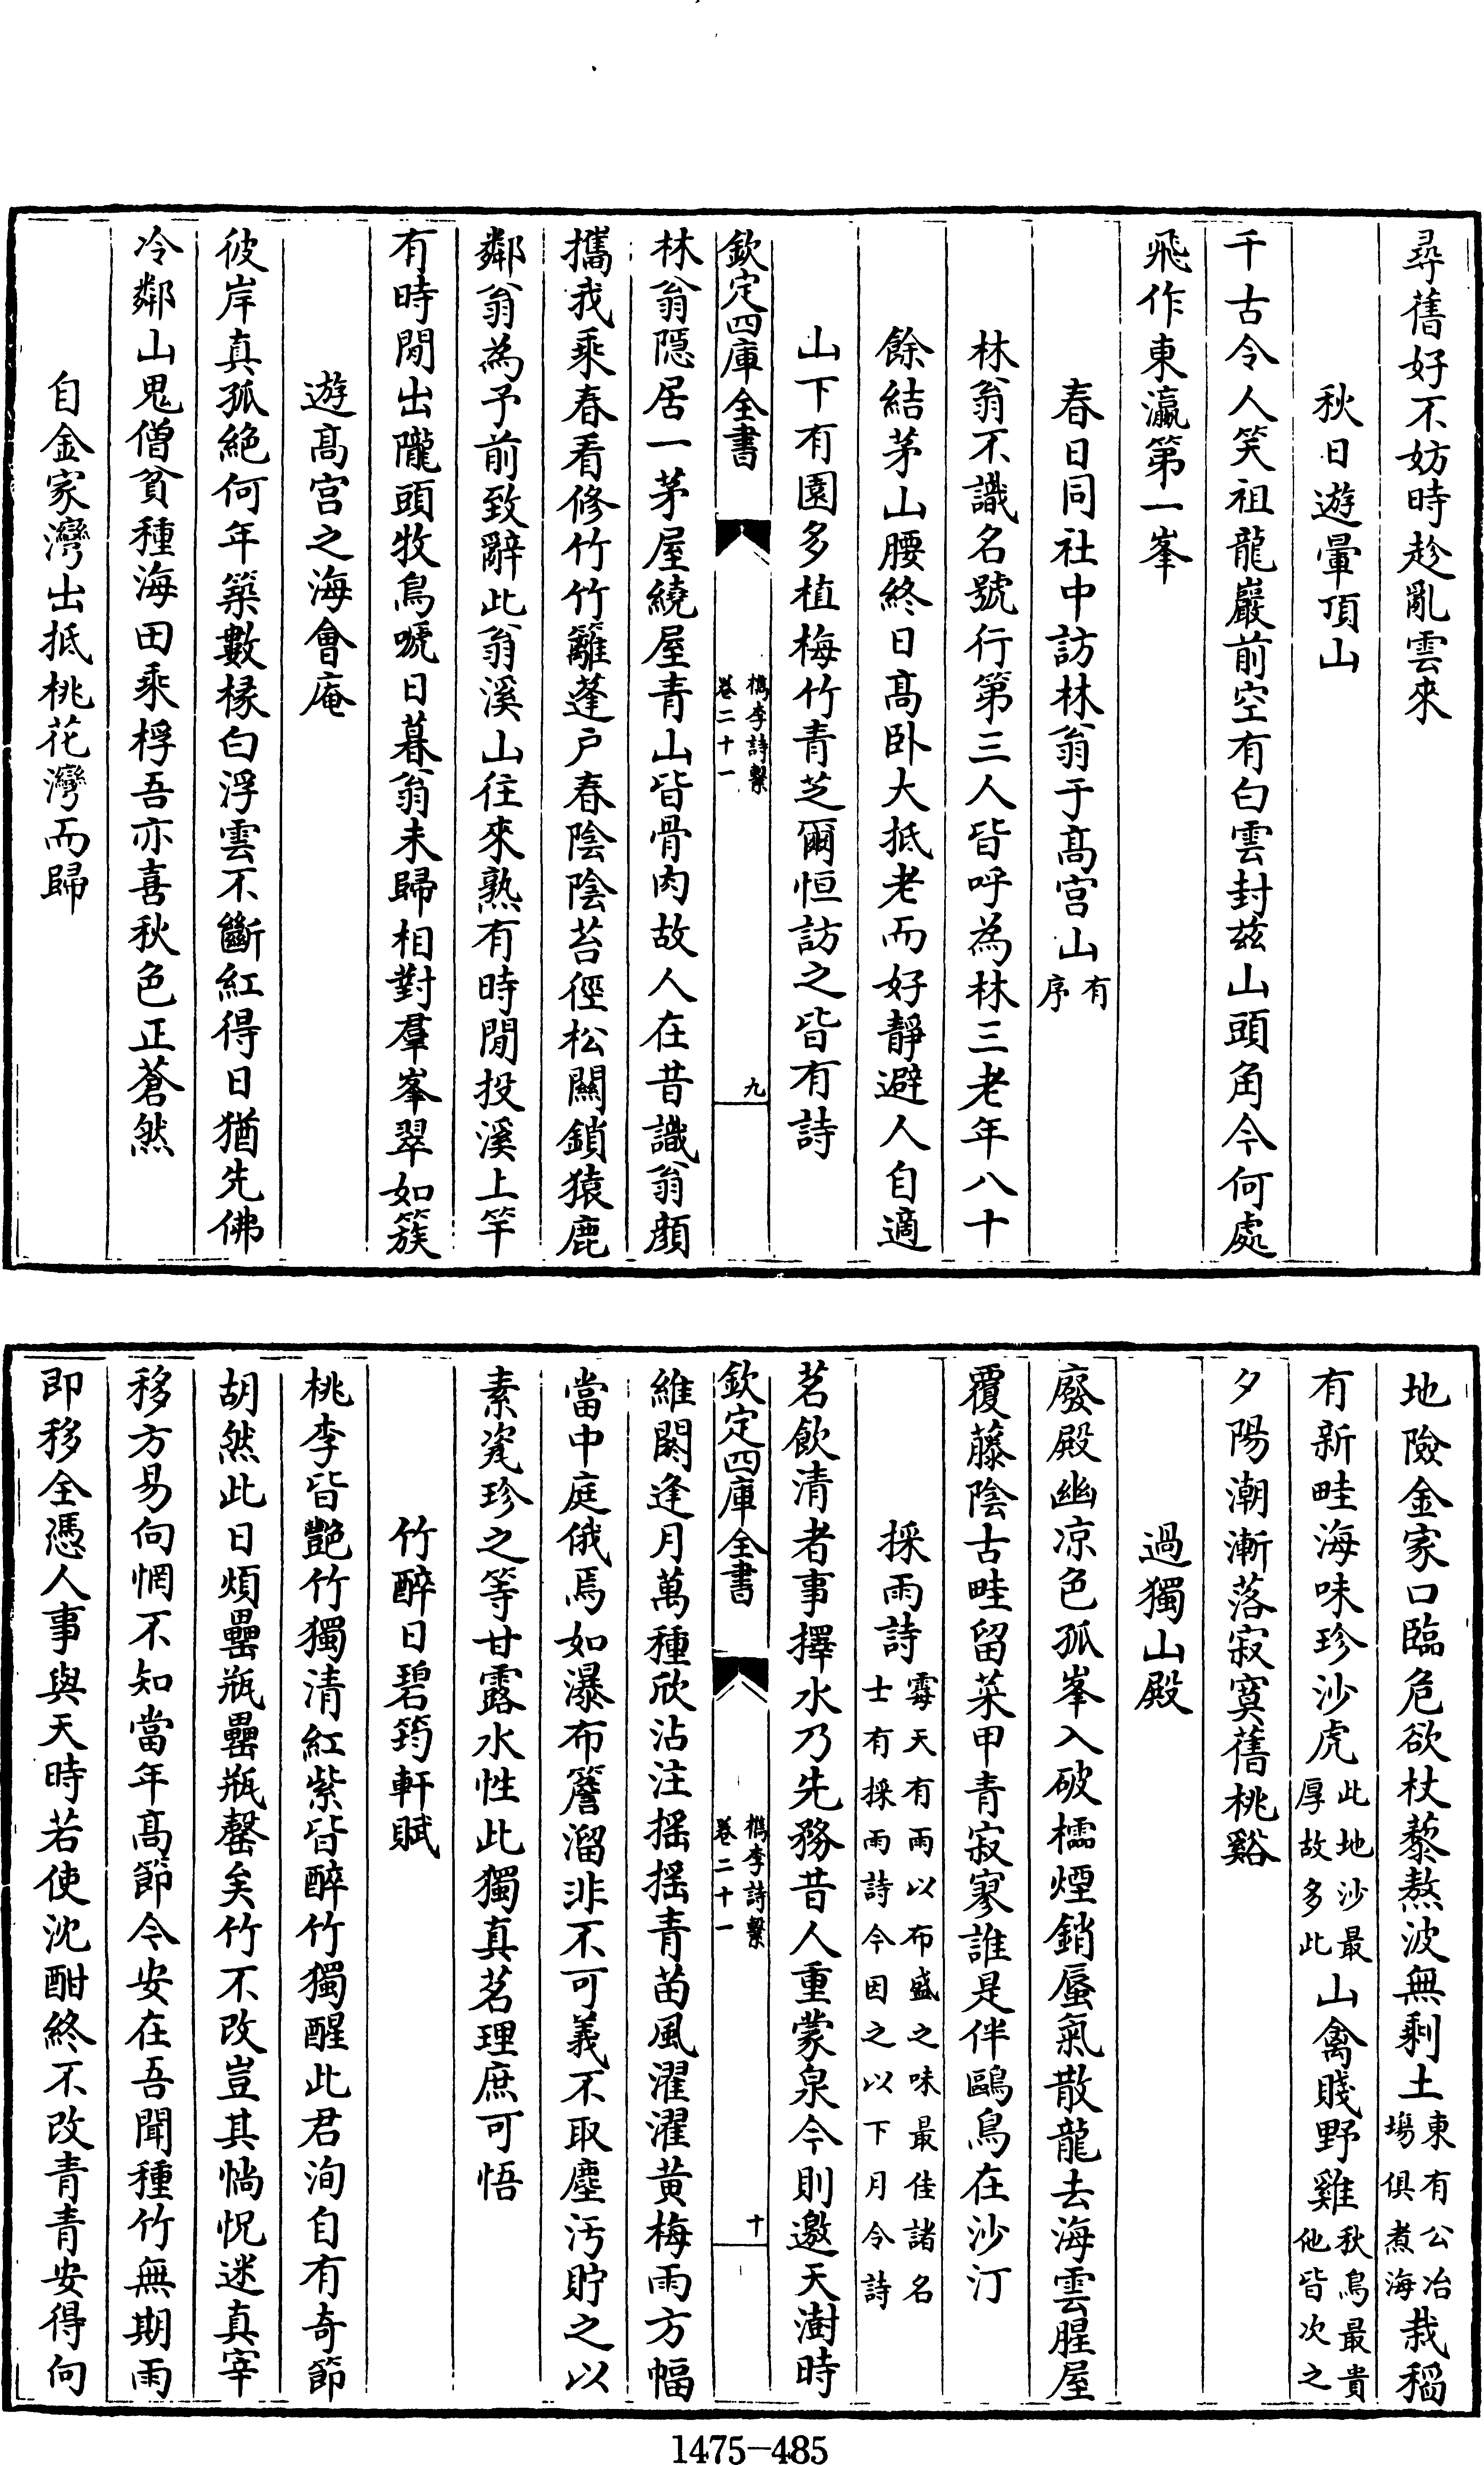 尋舊好不妨時趁亂雲來
秋日遊暈頂山
千古令人笑祖龍巖前空有白雲封茲山頭角今何處
飛作東瀛第一峯
春日同社中訪林翁于髙宫山有序
林翁不識名號行第三人皆呼為林三老年八十
餘結茅山腰終日髙卧大抵老而好靜避人自適
山下有園多植梅竹青芝爾恒訪之皆有詩
欽定四庫全書
檇李詩繫
卷二十一
九
林翁隠居一茅屋繞屋青山皆骨肉故人在昔識翁顔
攜我乘春看修竹竹籬蓬户春陰陰苔徑松關鎖猿鹿
鄰翁為予前致辭此翁溪山往來熟有時閒投溪上竿
有時閒出隴頭牧鳥唬日暮翁未歸相對羣峯翠如簇
遊髙宫之海會庵
彼岸真孤絶何年築數椽白浮雲不斷紅得日猶先佛
冷鄰山鬼僧貧種海田乘桴吾亦喜秋色正蒼然
自金家灣出抵桃花灣而歸
地險金家口臨危欲杖藜熬波無剩土東有公冶塲俱煮海栽稻
有新畦海味珍沙虎此地沙最厚故多此山禽賤野雞秋鳥最貴他皆次之
夕陽潮漸落寂寞舊桃谿
過獨山殿
廢殿幽凉色孤峯入破櫺煙銷蜃氣散龍去海雲腥屋
覆藤陰古畦留菜甲青寂寥誰是伴鷗鳥在沙汀
採雨詩霉天有雨以布盛之味最佳諸名士有採雨詩今因之以下月令詩
茗飲清者事擇水乃先務昔人重蒙泉今則邀天澍時
欽定四庫全書
檇李詩繫
卷二十一
十
維閼逢月萬種欣沾注摇摇青苗風濯濯黄梅雨方幅
當中庭俄焉如瀑布簷溜非不可義不取塵汚貯之以
素瓷珍之等甘露水性此獨真茗理庶可悟
竹醉日碧筠軒賦
桃李皆艷竹獨清紅紫皆醉竹獨醒此君洵自有奇節
胡然此日煩罍瓶罍瓶罄矣竹不改豈其惝怳迷真宰
移方易向惘不知當年髙節今安在吾聞種竹無期雨
即移全憑人事與天時若使沈酣終不改青青安得向
1475—485